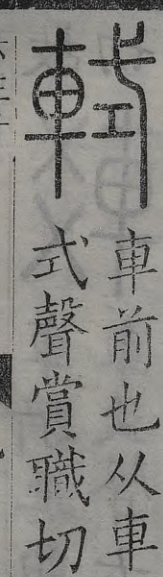 軾
車前也从車
式聲賞職切